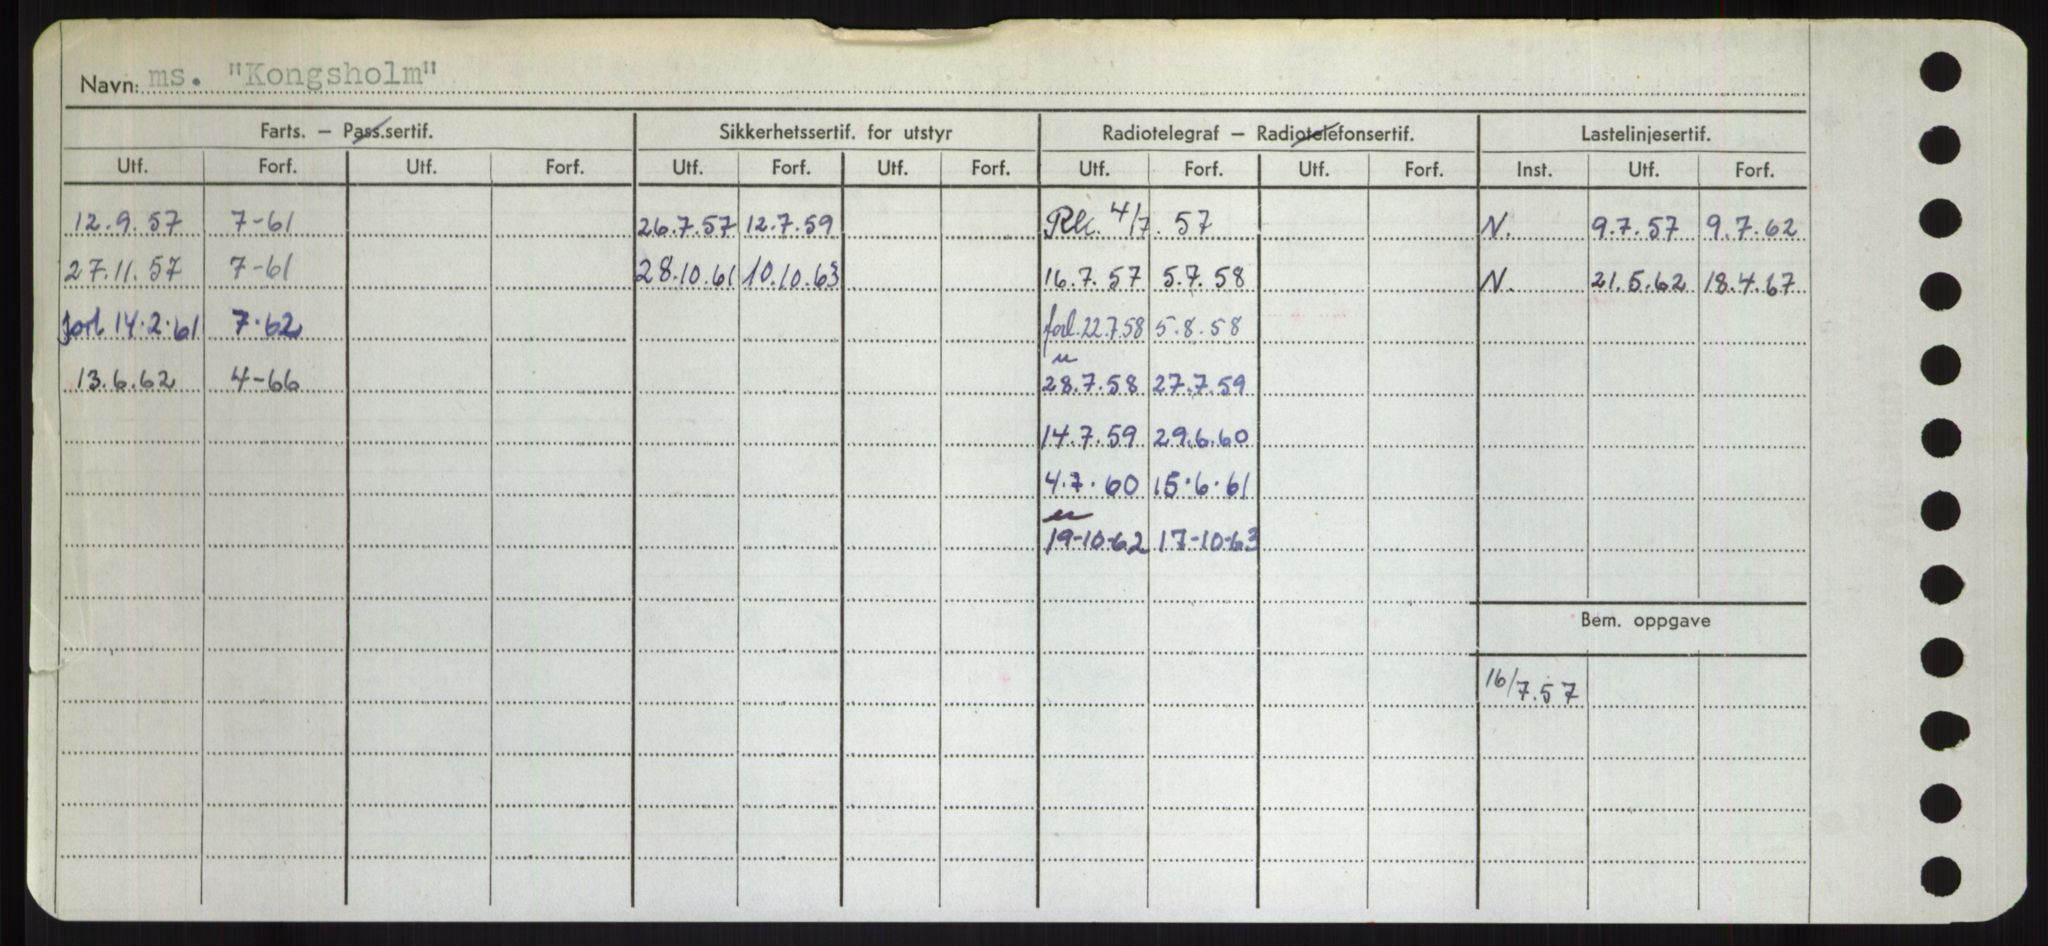 Navn: ms. "Kongsholm"
Farts. — Pass.sertif. Sikkerhetssertif. for utstyr Radiotelegraf — Radiotelefonsertif. Lastelinjesertif.
Utf. Forf. Utf. Forf. Utf. Forf. Utf. Forf. Utf. Forf. Utf. Forf. Inst. Utf. Forf.
12.9.57 7-61 26.7.57 12.7.59 4/7. 57 N. 9.7.57 9.7.62
27.11.57 7-61 28.10.61 10.10.63 16.7.57 5.7.58 N. 21.5.62 18.4.67
forl 14.2.61 7.62 forl.22.7.58 5.8.58
13.6.62 4-66 28.7.58 27.7.59
14.7.59 29.6.60
4.7.60 15.6.61
19-10-62 17-10-63
Bem. oppgave
16/7.57